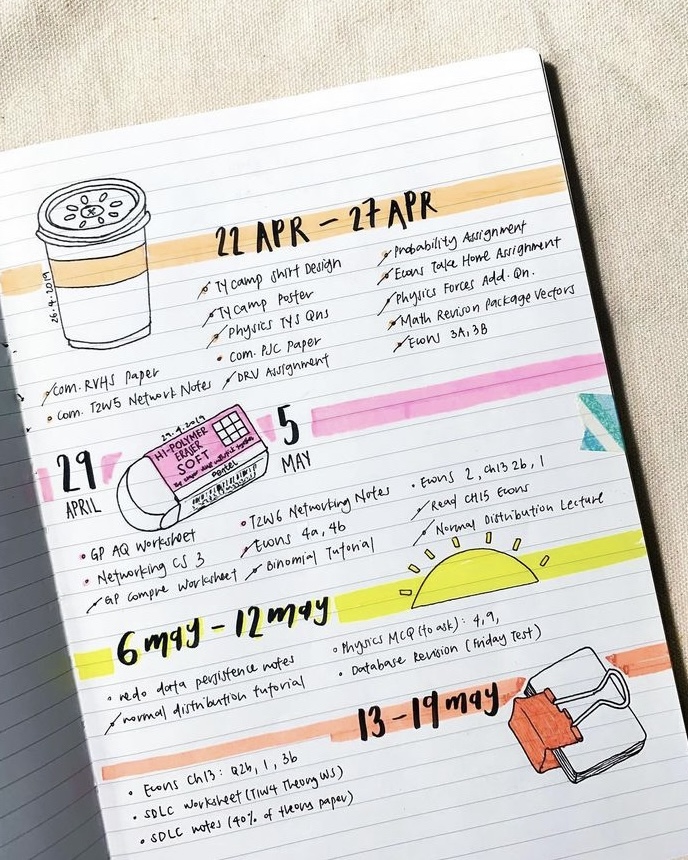 22 APR - 27 APR
26.4.2019
TY camp shirt Design
TY camp Poster
Physics TYS Qns
com. PJC Paper
DRV Assignment
com. RVHS Paper
com. T2W5 Network Notes
Probability Assignment
Econs Take Home Assignment
Physics Forces Add. Qn.
Math Revison Package Vectors
Econs 3A, 3B
29
APRIL
29.4.2019
HI-POLYMER
ERASER
SOFT
Pentel
5
MAY
GP AQ Worksheet
Networking CS 3
GP compre Worksheet
T2W6 Networking Notes
Econs 4a, 4b
Binomial Tutorial
Econs 2, Ch13 2b, 1
Read CH15 Econs
Normal Distribution Lecture
6 may - 12 may
redo data persistence notes
normal distribution tutorial
Physics MCQ (to ask): 4, 9,
Database Revision (Friday Test)
13 - 19 may
Econs Ch13: Q2b, 1, 3b
SDLC Worksheet (T1W4 Theory WS)
SDLC notes (40% of theory paper)